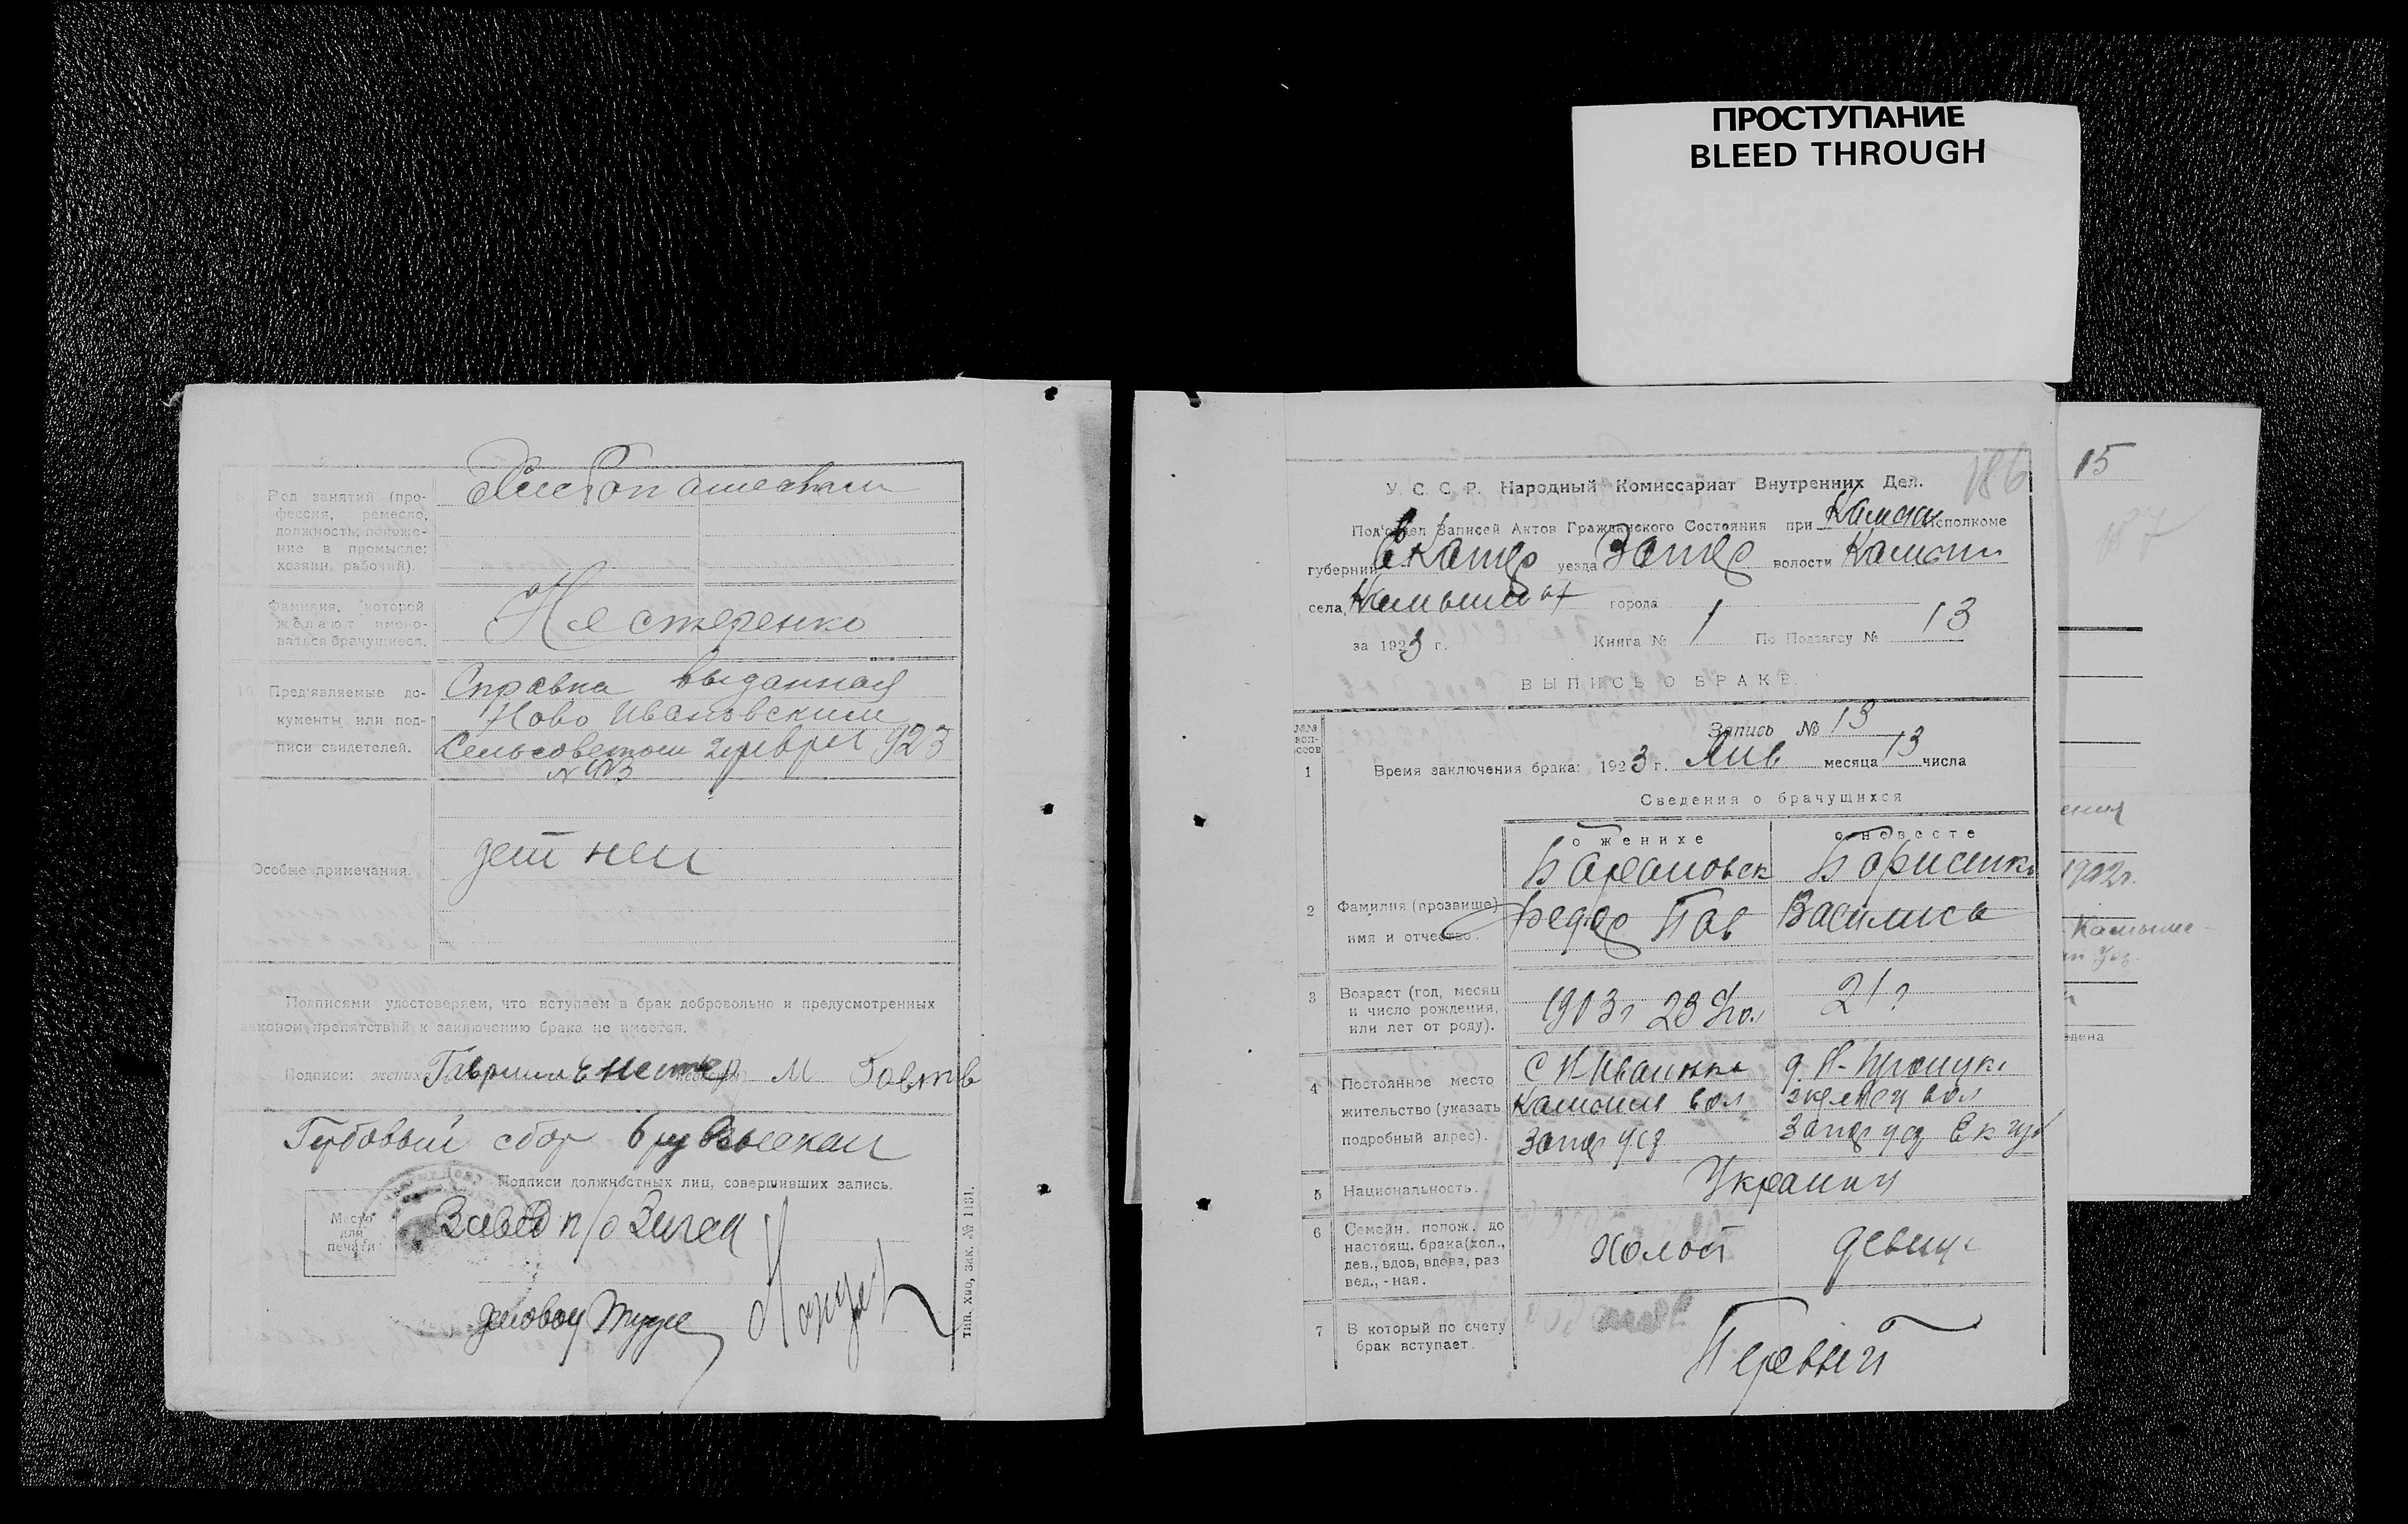 ПРОСТУПАНИЕ
BLEED THROUGH
8 Род занятий (про-
фессия, ремесло,
должность, положе-
ние в промысле:
хозяин, рабочий).
9 Фамилия, которой
желают имено-
ваться брачущиеся.
Нестеренко
10 Пред'являемые до-
кументы или под-
писи свидетелей.
Справка выданная
Ново Ивановским
Сельсоветом 923
№
Особые примечания.
дет нет
Подписями удостоверяем, что вступаем в брак добровольно и предусмотренных
законом, препятствий к заключению брака не имеется.
Подписи: жениха Гаврииль Нестер М
Гербовый сбор 6 взыскан
Подписи должностных лиц, совершивших запись.
Место
для
печати
Завед п/о
тип. Хио, зак. № 1131.
186
У. С. С. Р. Народный Комиссариат Внутренних Дел.
Под'отдел Записей Актов Гражданского Состояния при Камыш исполкоме
губернии Екатер уезда Запор волости Камыш
села города
за 1923 г. Книга № 1 По Подзагсу № 13
ВЫПИСЬ О БРАКЕ.
№№
воп-
росов
Запись № 13
1 Время заключения брака: 1923 г. Янв месяца 13 числа
Сведения о брачущихся
о женихе о невесте
2 Фамилия (прозвище)
имя и отчество.
Барановск Борисенко
Федор Пав Василиса
3 Возраст (год, месяц
и число рождения,
или лет от роду).
1903 г 23 21 г
4 Постоянное место
жительство (указать
подробный адрес).
С Н-Ивановка д. Н-
Камыш вол вол
Запор уез Запор уез Ек губ
5 Национальность.
Украинц
6 Семейн. полож. до
настоящ. брака (хол.,
дев., вдов, вдова, раз
вед., - ная.
Холост девица
7 В который по счету
брак вступает.
Первый
15
187
ения
1902г.
Камыше-
уез.